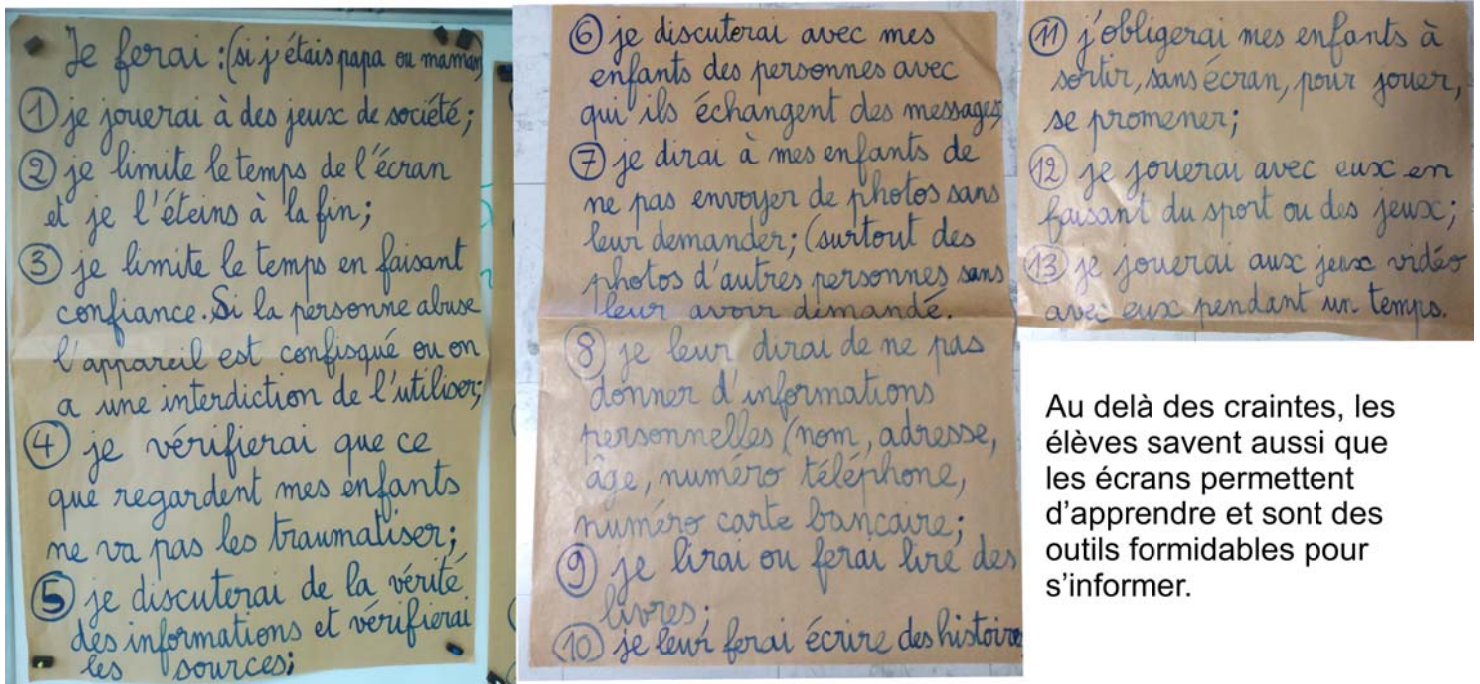 Je ferai : (si j'étais papa ou maman)
① je jouerai à des jeux de société;
② je limite le temps de l'écran
et je l'éteins à la fin;
③ je limite le temps en faisant
confiance. Si la personne abuse
l'appareil est confisqué ou on
a une interdiction de l'utiliser;
④ je vérifierai que ce
que regardent mes enfants
ne va pas les traumatiser;
⑤ je discuterai de la vérité
des informations et vérifierai
les sources;
⑥ je discuterai avec mes
enfants des personnes avec
qui ils échangent des messages;
⑦ je dirai à mes enfants de
ne pas envoyer de photos sans
leur demander; (surtout des
photos d'autres personnes sans
leur avoir demandé.
⑧ je leur dirai de ne pas
donner d'informations
personnelles (nom, adresse,
âge, numéro téléphone,
numéro carte bancaire;
⑨ je lirai ou ferai lire des
livres;
⑩ je leur ferai écrire des histoire
⑪ j'obligerai mes enfants à
sortir, sans écran, pour jouer,
se promener;
⑫ je jouerai avec eux en
faisant du sport ou des jeux;
⑬ je jouerai aux jeux vidéo
avec eux pendant un temps.
Au delà des craintes, les
élèves savent aussi que
les écrans permettent
d'apprendre et sont des
outils formidables pour
s'informer.